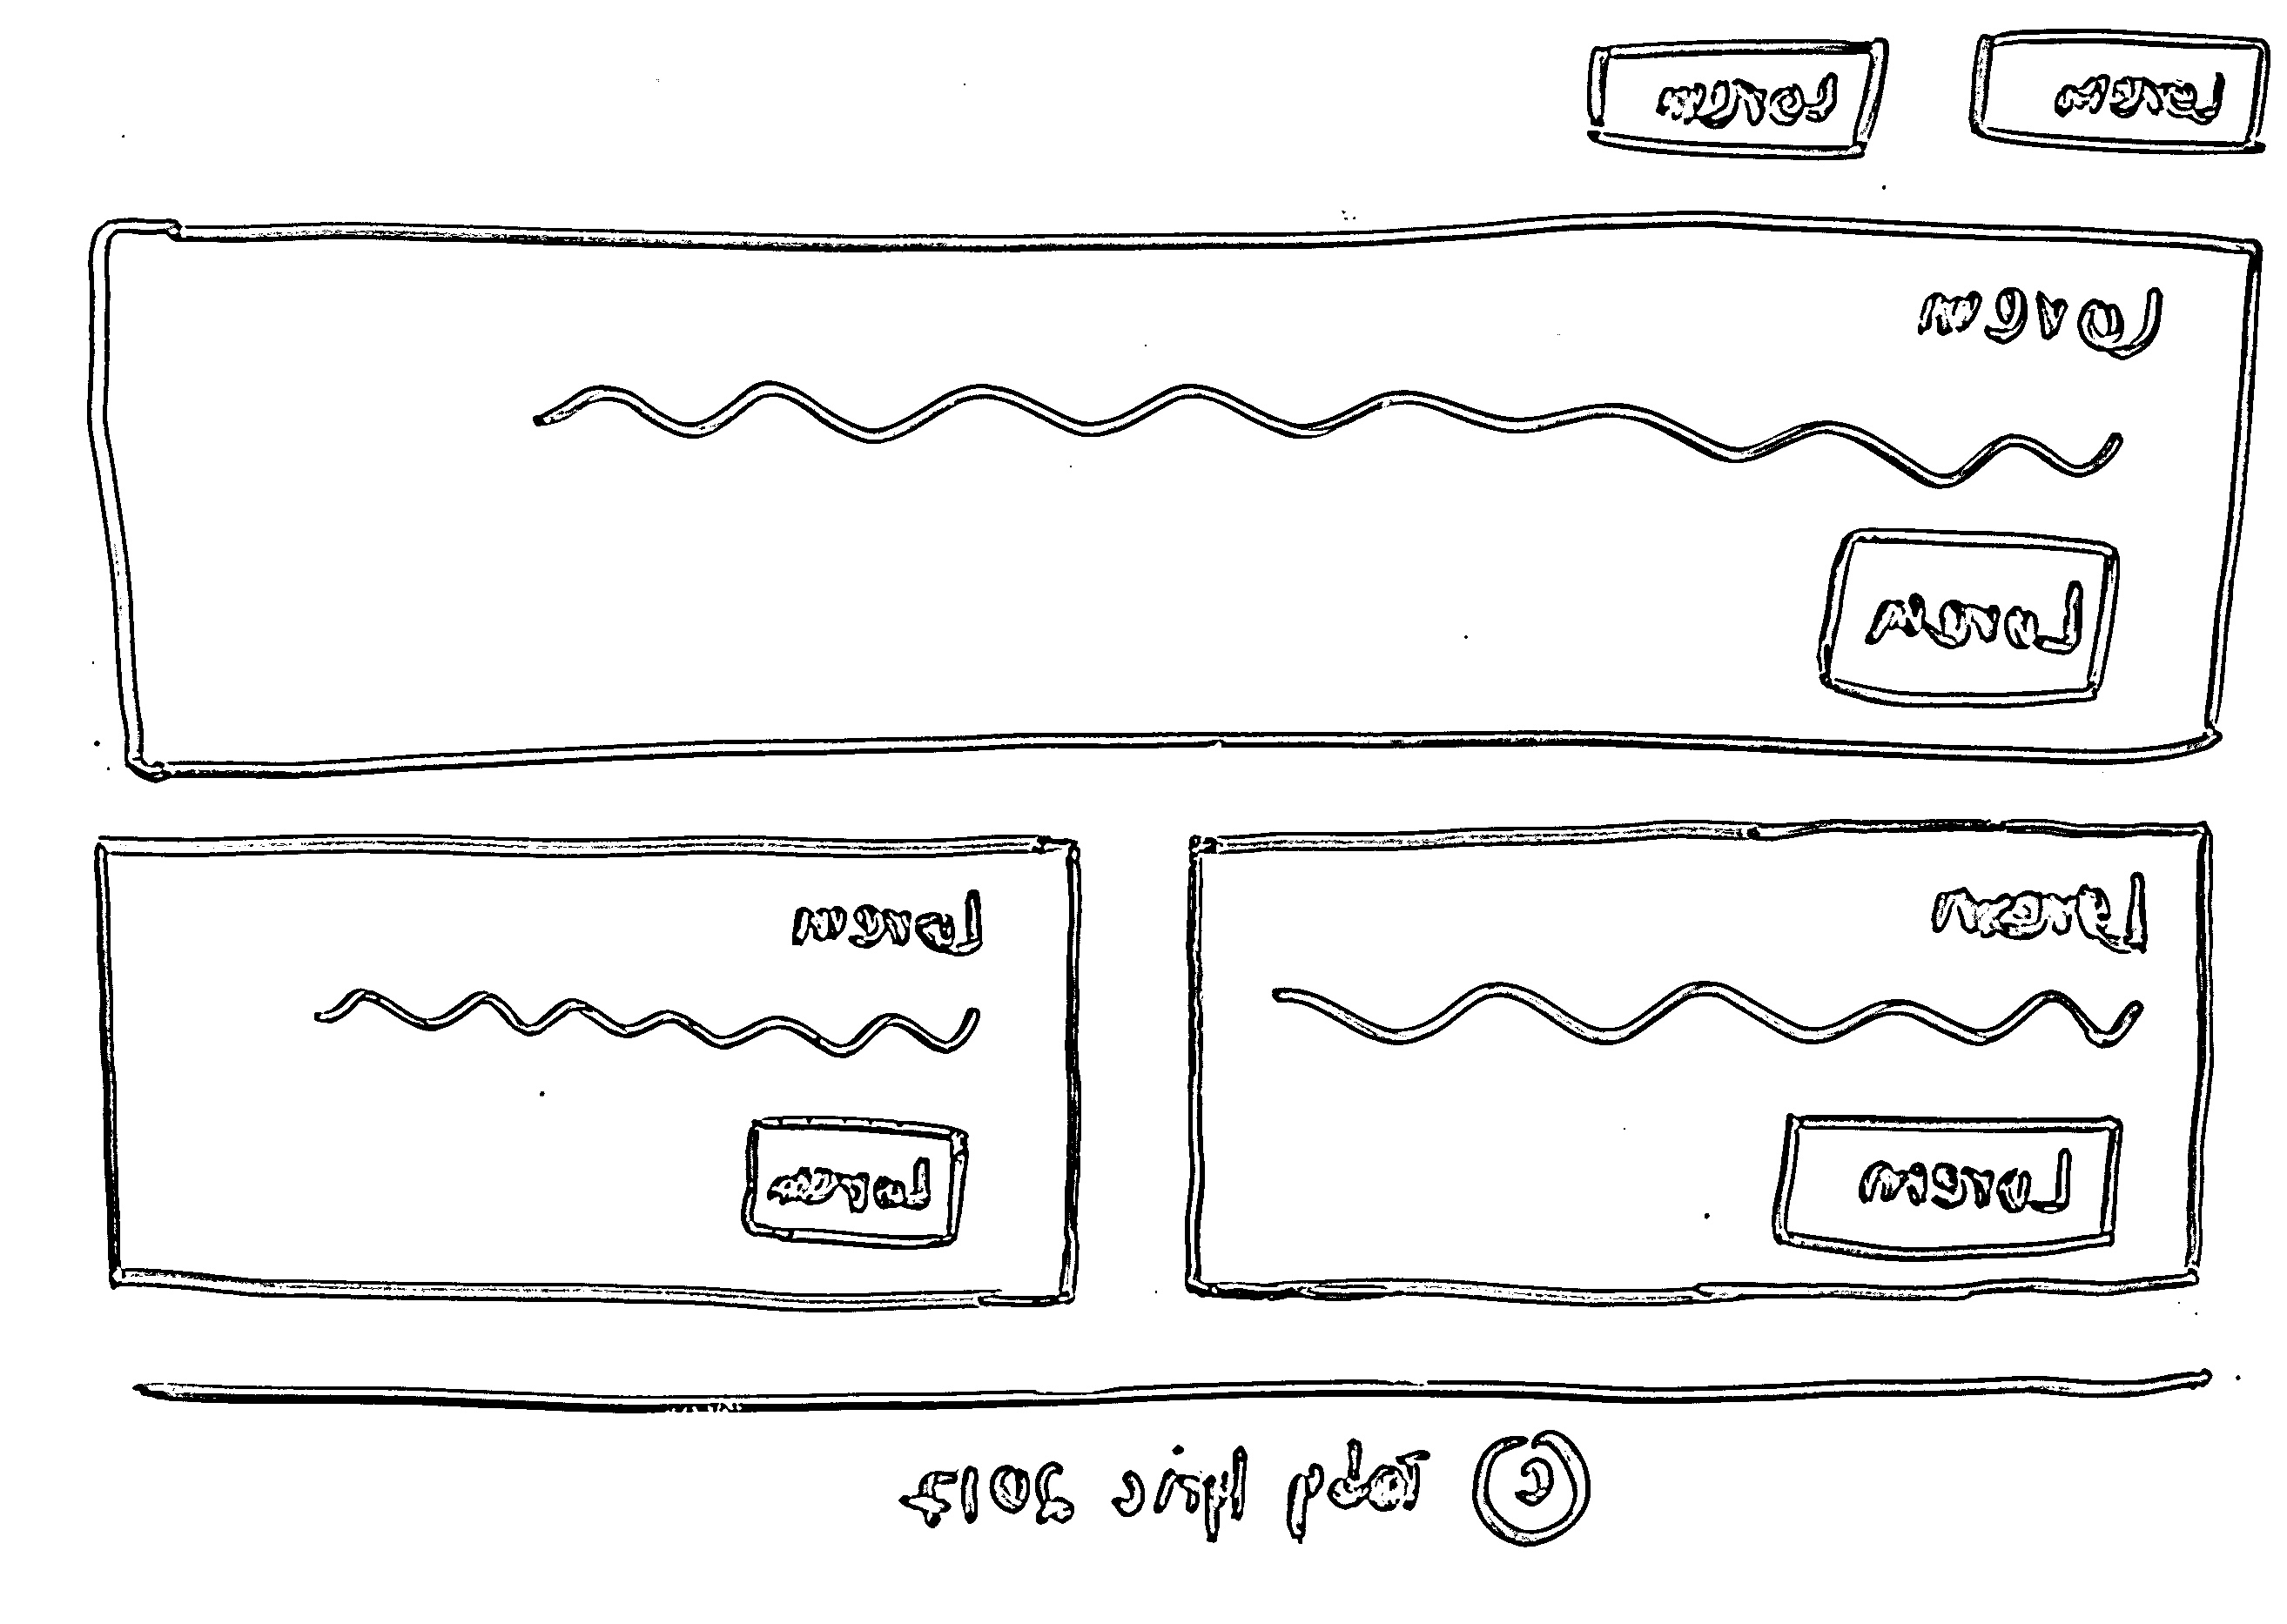 Lorem Lorem
Lorem
Lorem
Lorem Lorem
Lorem Lorem
© 2017